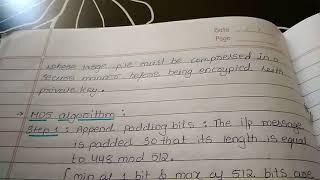 Date
Page
whose large file must be compressed in a
secure manner before being encrypted with
private key.
→ MD5 algorithm :
Step 1 : Append padding bits : The i/p message
is padded so that its length is equal
to 448 mod 512.
[min at 1 bit & max at 512 bits are